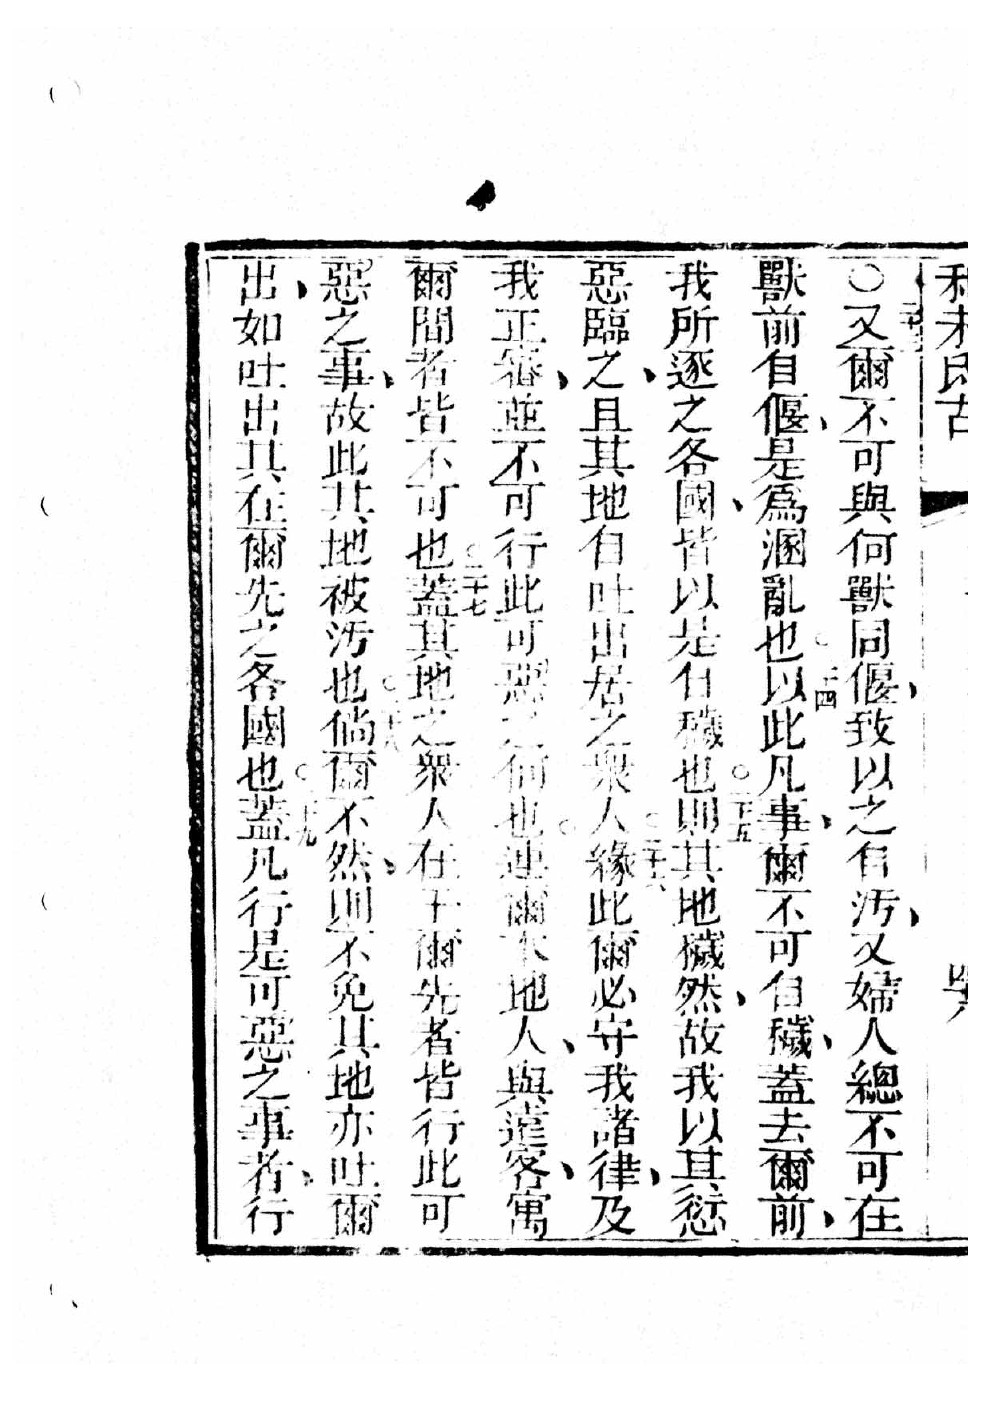 利未氏古
○又爾不可與何獸同偃致以之自污又婦人總不可在
獸前自偃是為溷亂也○二十四以此凡事爾不可自穢蓋去爾前
我所逐之各國皆以是自穢也○二十五則其地穢然故我以其愆
惡臨之且其地自吐出居之衆人○二十六緣此爾必守我諸律及
我正審並不可行此可惡之何也○連爾本地人與遠客寓
爾間者皆不可也○二十七蓋其地之衆人在于爾先者皆行此可
惡之事故此其地被污也○二十八倘爾不然則不免其地亦吐爾
出如吐出其在爾先之各國也○二十九蓋凡行是可惡之事者行